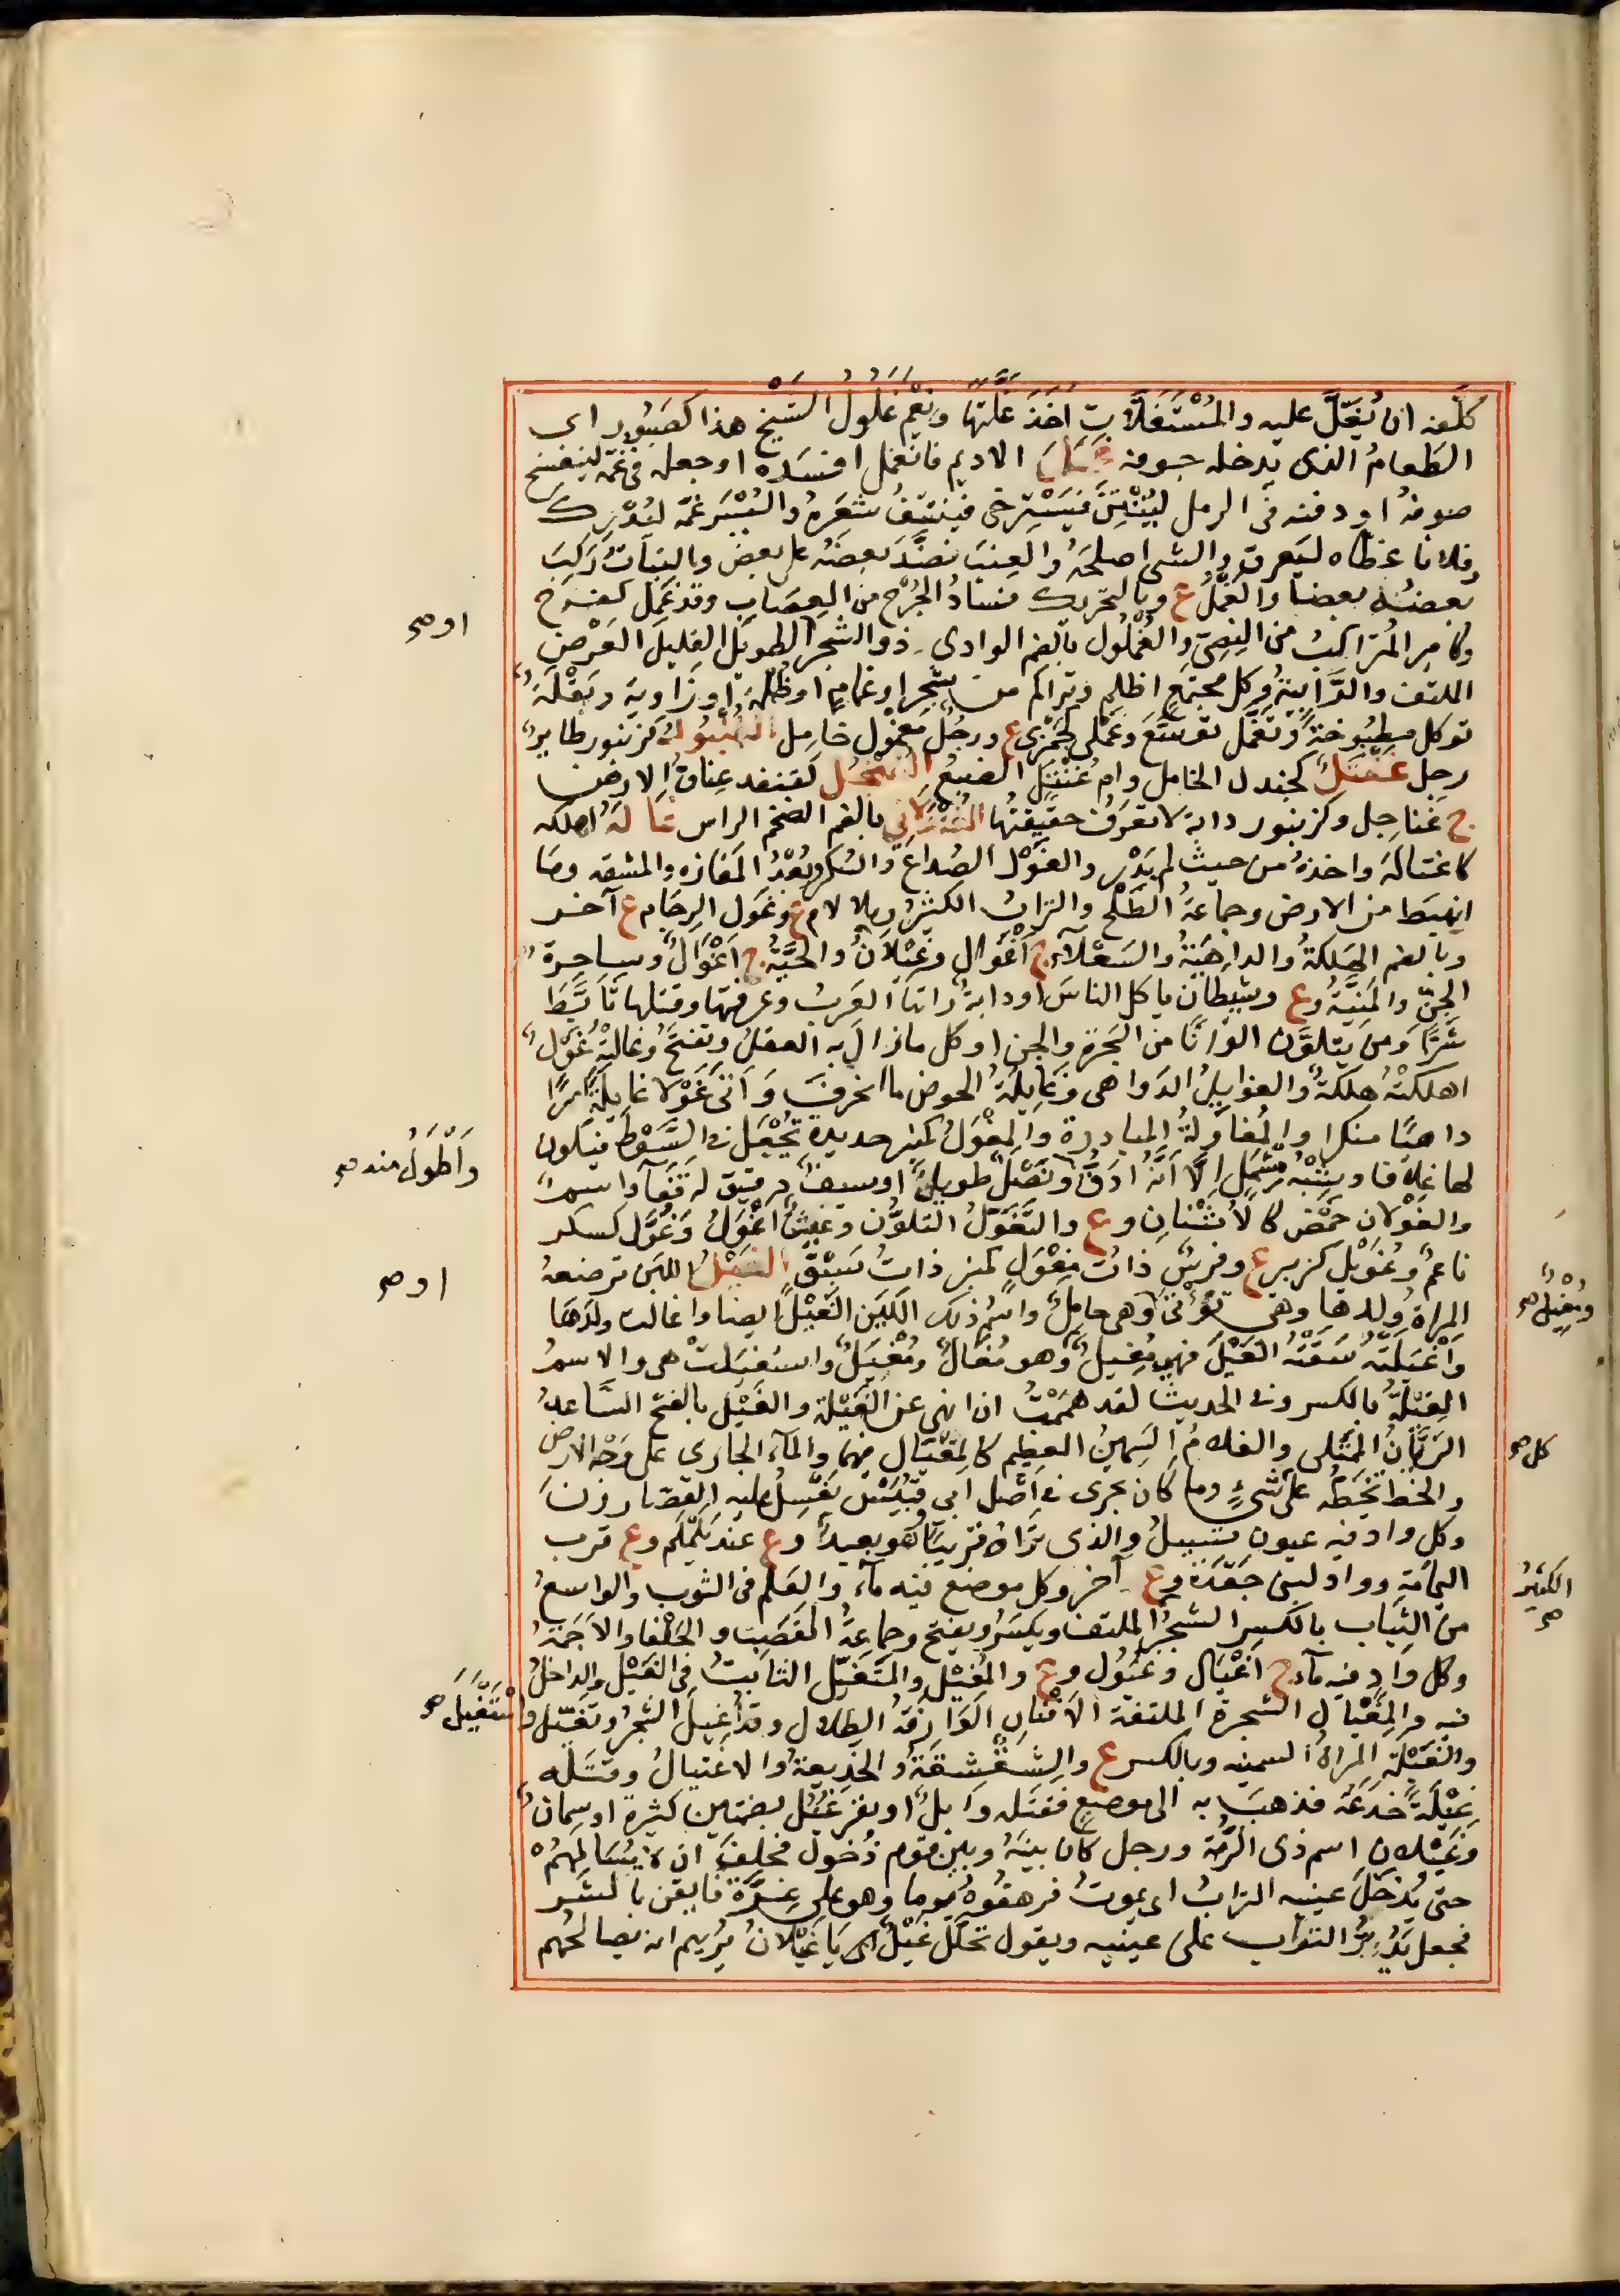 كلفه ان يُغِلَّ عليه والمُسْتَغَلَّات اَخَذَ غَلَّتها ونِعْمَ غَلُولُ الشَّيْخِ هذا كصَبُور اى
الطَعامُ الذى يدخله جوفه غَمَلَ الاديم فانغمل افسَدَه او جعله فى غُمّة لينفسخ
صوفهُ او دفنه فى الرمل ليُنْتِنَ فيَسْتَرخى فينتتِفُ شعَرهُ والبُسْرَ غمّه ليُدْرِك
وفلانا غطاه ليَعرق والشى اصلحَهُ والعِنبَ نضَّدَ بعضَهُ على بعض والنباتُ رَكِبَ
بعضُه بعضا والغَمْلُ ع وبالتحريك فسادُ الجُرْحِ من العِصَاب وقد غَمِل كفرح
وكامِر المُتراكِبُ من النَصِىّ والغُمْلُول بالضم الوادى ذو الشجر الطويل القليل العَرْض
الملتف والرَّابِيةُ وكل مجتمع اظلم وتراكم من شجر او غمام او ظلمة او زاوية وبَقْلَةٌ
توكل مطبُوخةً وتَغَمَّل توسَّعَ وغَمَلى كجَمَزى ع ورجُلٌ مَغمُول خامِل الغُنْبُولُ كزنبور طاير
رجل غَنْتَلٌ كجندل الخامل وام غَنْتَل الضبعُ الغُنْجُلُ كقنفذ عناق الارض
ج غَناجِل وكزنبور دابة لا تعرف حقيقتُها الغُنْدُلانِى بالضم الضخم الراس غالَهُ اهلكه
كاغتالهَ واخذهُ من حيث لم يَدْرِ والغَوْل الصُداعُ والسُكر وبُعْدُ المَفازه والمشقه وما
انهبَط من الارض وجماعةُ الطَلْح والترابُ الكثيرُ وبلا لام ع وغَول الرِجَام ع آخر
وبالضم الهَلكةُ والداهيةُ والسَعْلاة ج اَغْوال وغيْلانٌ والحيَّةُ ج اَغْوالٌ وساحِرةُ
الجِنّ والمَنِيَّةُ وع وشيطان ياكل الناس او دابةٌ راتها العَربُ وعرفتها وقتلها تَاَبَّط
شَرًّا ومن يتلوّن الوانًا من السَحَرة والجن او كل ما زال به العقل ويفتحُ وغالتْهُ غُوْلٌ
اهلكتْهُ هلكةٌ والغوايلُ الدواهى وغايلةُ الحوض ما انخرق وَاَتى غَوْلا غايلةً امرًا
داهيًا منكرا والمُغاوَلةُ المبادرة والمِغْوَلُ كمنبر حديدة تُجْعَل فى السَّوْط فيكون
لها غلافا وشِبْهُ مِشْمَلٍ الّا اَنَّهُ اَدَقّ ونَصْلٌ طويلٌ او سيفٌ دقيق له قفًا واسمٌ
والغَوْلان حَمْضٌ كالاُشْنان وع والتَّغَوُّل التلوُّن وعيشٌ اَغْوَلُ وغُوَّل كسكر
ناعمٌ وغُوَيْل كزبير ع وفرسٌ ذاتُ مِغْوَلٍ كمنبر ذاتُ سَبْق الغَيْلُ اللبن ترضعهُ
المراة ولدها وهى تُؤْتى او وهى حامِلٌ واسم ذلك اللبن الغَيْلُ ايضا واغالت ولدَها
واَغْيَلَتْهُ سَقَتْهُ الغَيْلَ فهى مُغِيلٌ وهو مُغالٌ ومُغْيَلٌ واستغيَلت هى والاسمُ
الغِيْلةُ بالكسر وفى الحديث لقد هَمَمْتُ ان انهى عن الغِيْلة والغَيْل بالفتح السَّاعدُ
الرَيَّانُ المُمْتَلى والغلامُ السَمِينُ العظيم كالمُغْتال فيهما والمآء الجارى على وَجْه الارض
والخط تَخُطُّه على شىءٍ وما كان يجرى فى اَصْل ابى قُبَيْس يَغْسِلُ عليه القصّارونَ
وكل واد فيه عيون تسيلُ والذى تَراهُ قريبًا وهو بعيدٌ وع عند يَلَمْلَم وع قرب
اليَمَامَةِ وواد لبنى جَعْدَة وع آخر وكل موضع فيه مآء والعَلَم فى الثوب والواسعُ
من الثِياب بالكسر الشجرُ الملتف ويكسَر ويفتح وجماعةُ القصَب والحَلْفا والاَجَمةُ
وكل وادٍ فيه مآء ج اَغْيال وغُيُول وع والمُغْيِلُ والمتَغَيِّل الثابتُ فى الغَيْل والداخلُ
فيه والمِغْيال الشجرة الملتفة الاَفنان الوارفةُ الظلال وقد اُغيل الشجرُ وتَغَيَّل واسْتَغْيَلَ صح
والغَيْلَة المراةُ السمينه وبالكسر ع والشقْشِقَةُ والخَدِيعةُ والاغتيالُ وقَتَله
غِيْلَةً خَدَعَهُ فذهبَ به الى موضع فقَتَله وابلٌ او بقر غُيُل بضمتين كثيرة او سِمانٌ
وغَيْلان اسم ذى الرُمّة ورجل كان بينَهُ وبين قوم ذُحُول فحلف ان لا يُسَالِمَهُم
حتى يُدْخَلَ عينيه الترابُ اى يموتُ فرهقوهُ يوما وهو على غِرَّة فايقن بالشر
فجعل يَذُرُّ التراب على عينيه ويقول تحلَّلْ غَيْلُ اى يا غَيْلانُ يُريهم انه يصالحُهم
او صح
وَاَطْوَلُ منه صح
او صح
ومُغْيِلٌ صح
كل صح
الكثيرُ
صح